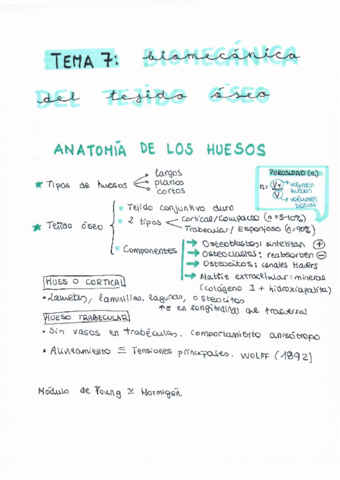 TEMA 7: biomecánica
del tejido óseo
ANATOMÍA DE LOS HUESOS
POROSIDAD (n)
n = Vv / V
volumen huecos
volumen total
* Tipos de huesos
largos
planos
cortos
* Tejido óseo
• Tejido conjuntivo duro
• 2 tipos
Cortical/Compacto (n=5-10%)
Trabecular/Esponjoso (n=90%)
• Componentes
→ Osteoblastos: sintetizan (+)
→ Osteoclastos: reabsorben (-)
→ Osteocitos: canales Havers
→ Matriz extracelular: mineral
(colágeno I + hidroxiapatita)
HUESO CORTICAL
• Lamelas, laminillas, lagunas, osteocitos
↑E en longitudinal que trasversal
HUESO TRABECULAR
• Sin vasos en trabéculas. comportamiento anisótropo
• Alineamiento = Tensiones principales. WOLFF (1892)
Módulo de Young ≃ Hormigón.